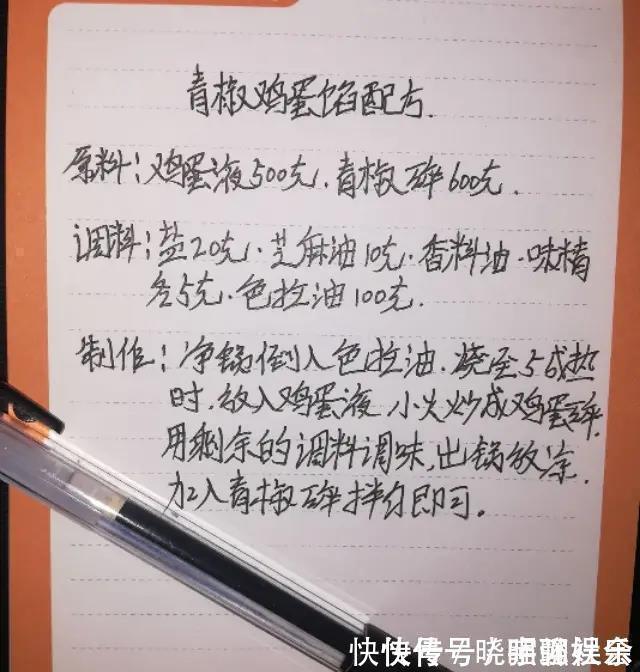 青椒鸡蛋馅配方.
原料:鸡蛋液500克.青椒碎600克.
调料:盐20克.芝麻油10克.香料油.味精
各5克.色拉油100克.
制作:净锅倒入色拉油.烧至5成热
时.放入鸡蛋液 小火炒成鸡蛋碎.
用剩余的调料调味,出锅放凉.
加入青椒碎拌匀即可。
快传号